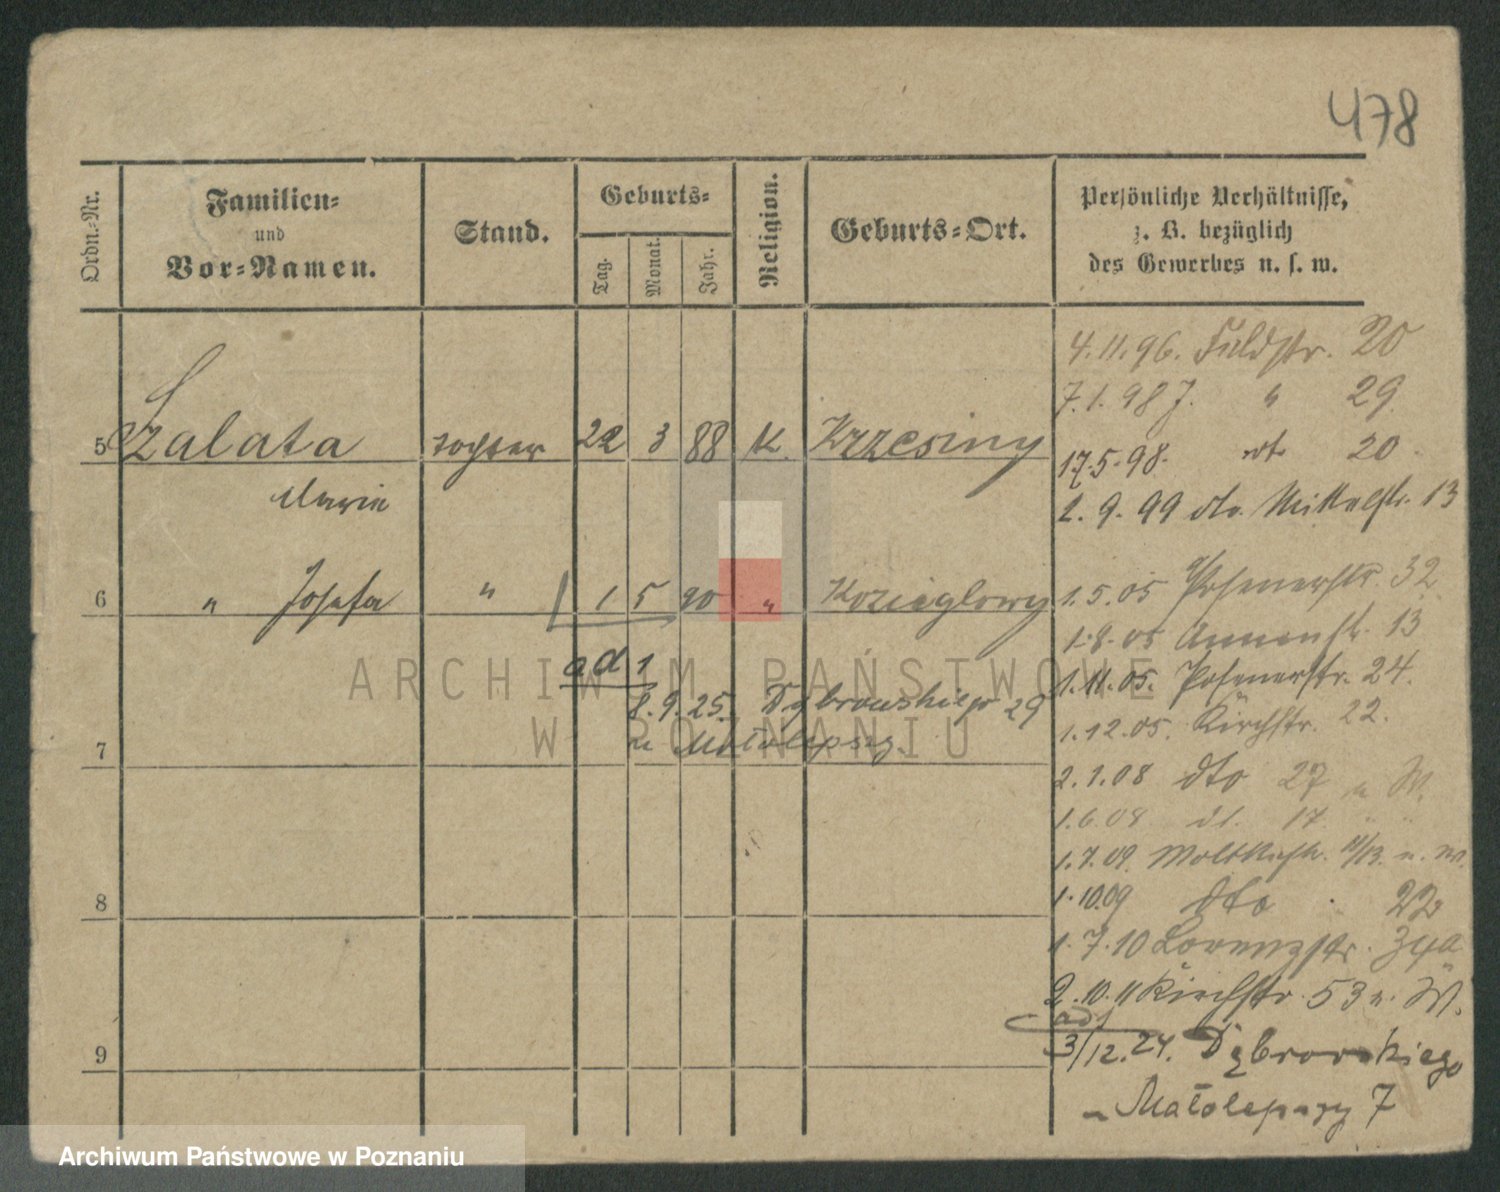 478
Ordn.-Nr.
Familien-
und
Vor-Namen.
Stand.
Geburts-
Tag.
Monat.
Jahr.
Religion.
Geburts-Ort.
Persönliche Verhältnisse,
z. B. bezüglich
des Gewerbes u. s. w.
4.11.96. Feldstr. 20
7.1.98 " 29
5 Szalata Tochter 22 3 88 K. Krzesiny
17.5.98. dt 20
Marie
2.9.99 dto. Mittelstr. 13
6 " Josefa " 1 5 90 " Kozieglowy
1.5.05 Posenerstr. 32
1.8.05 Annenstr. 13
ad 1
1.11.05. Posenerstr. 24.
8.9.25. Dąbrowskiego 29
1.12.05. Kirchstr. 22.
u Małolepszy.
7
2.1.08 dto 27 u W.
1.6.08 dt. 17 " "
1.7.09. Moltkestr. u. W.
8
1.10.09 dto 22
1.7.10 Lorenzstr. 34a
2.10.11 Kirchstr. 53 u. W.
ad 1
9
3/12.24. Dąbrowskiego
u Małolepszy 7
ARCHIWUM PAŃSTWOWE
W POZNANIU
Archiwum Państwowe w Poznaniu